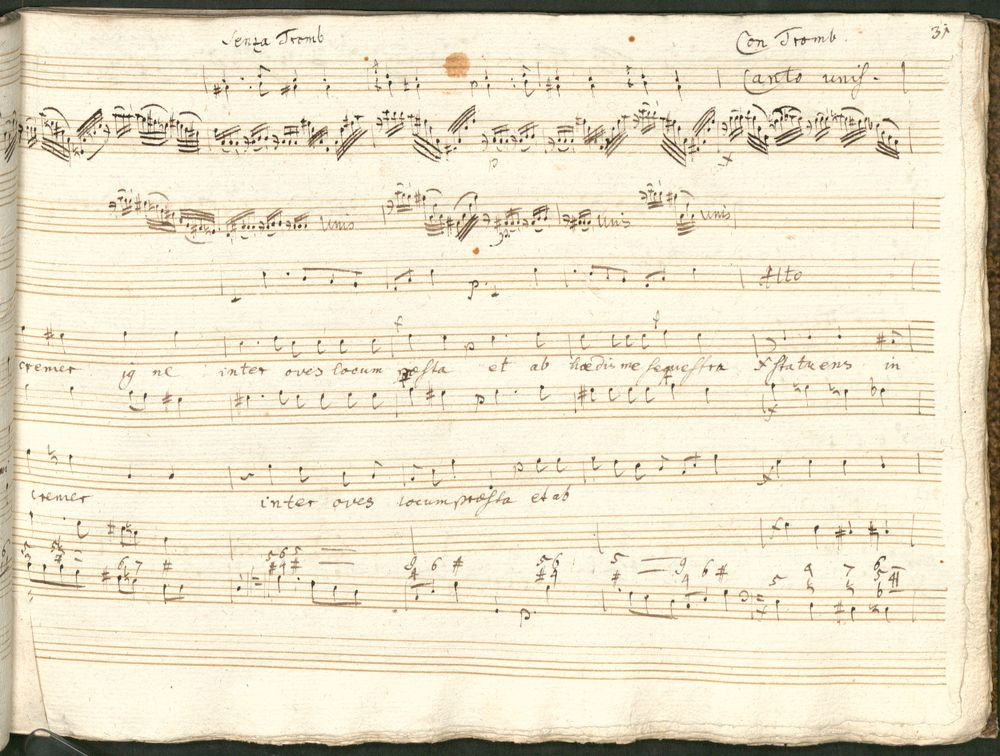 Senza Tromb Con Tromb. 31
Canto unis.
p f
unis unis unis
p. Alto
f f
p
cremer ig ne inter oves locum præsta et ab hædis me sequestra statuens in
p f
p f
cremer inter oves locum præsta et ab
f
5 6 5 6 7 # 5 6 5 # 4 # 9 6 # 5 6 # 4 5 # 9 6 # 5 7 6
p. f